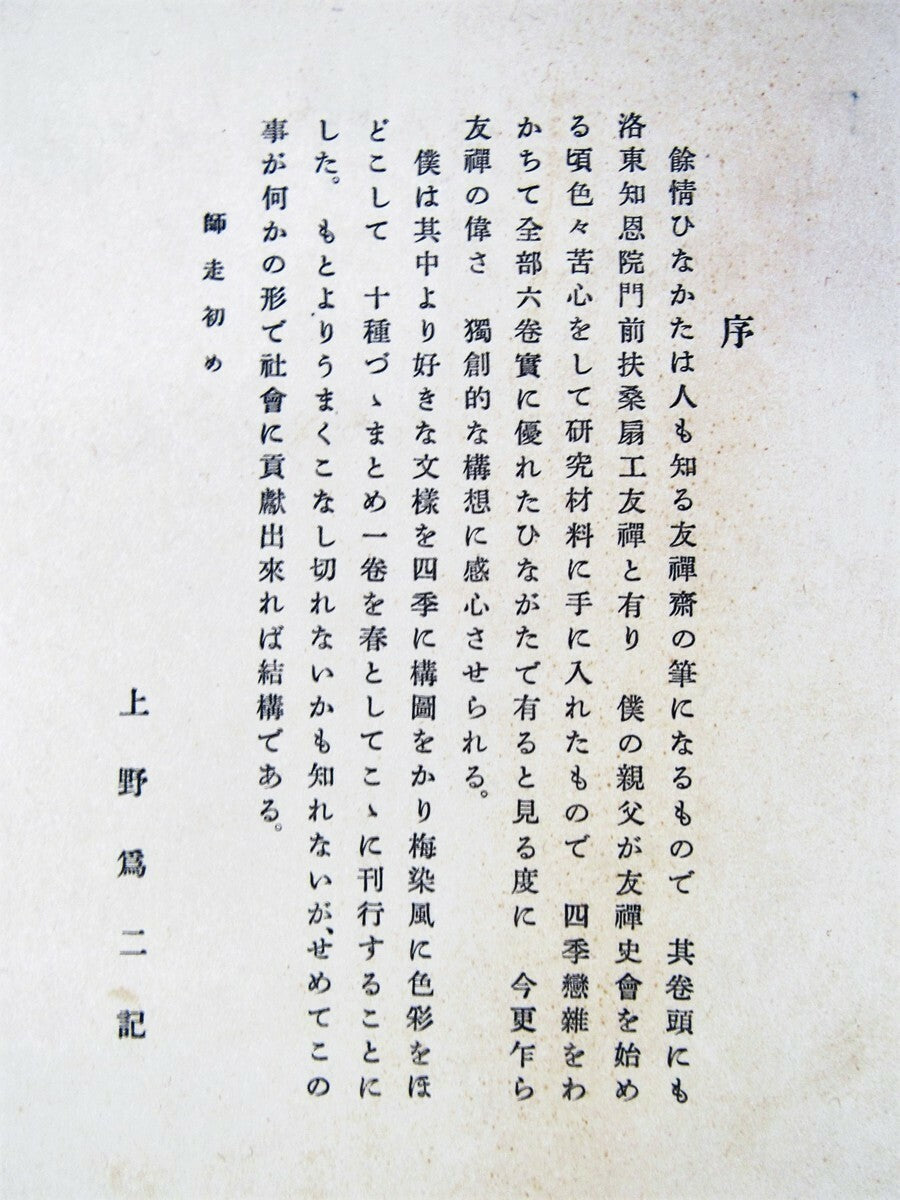 序
餘情ひなかたは人も知る友禪齋の筆になるもので　其卷頭にも
洛東知恩院門前扶桑扇工友禪と有り　僕の親父が友禪史會を始め
る頃色々苦心をして硏究材料に手に入れたもので　四季戀雜をわ
かちて全部六卷實に優れたひながたで有ると見る度に　今更乍ら
友禪の偉さ　獨創的な構想に感心させられる。
僕は其中より好きな文樣を四季に構圖をかり梅染風に色彩をほ
どこして　十種づゝまとめ一卷を春としてこゝに刊行することに
した。もとよりうまくこなし切れないかも知れないが、せめてこの
事が何かの形で社會に貢獻出來れば結構である。
師走初め
上野爲二記